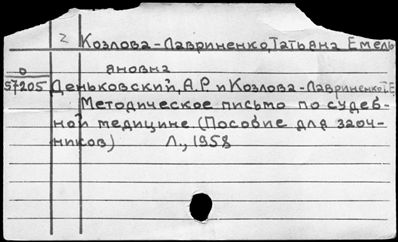 2 Козлова-Лавриненко, Татьяна Емель
яновна
о
57205 Деньковский, А.Р и Козлова-Лавриненко, Т.Е
Методическое письмо по судеб-
ной медицине (Пособие для заоч-
ников) Л., 1958